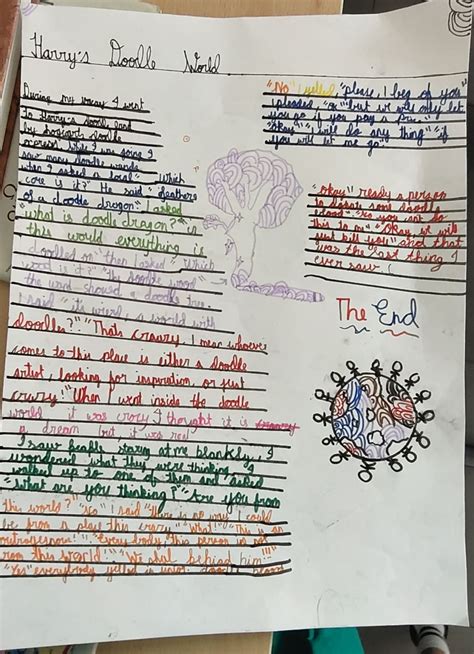 Harry's Doodle World
During my vacay I went
To Harry's doodle land
by doodle
express while I was going I
saw many doodle wands
when I asked a local "which
core is it?" He said "feathers
of a doodle dragon" I asked
"what is doodle dragon?" "in
this world everything is
doodled on" then I asked "Which
wood is it?" "its doodle wood
the wand should a doodle tree"
I said "its wierd, a world with
doodles?" "Thats crawzy, I mean whoever
comes to this place is either a doodle
artist, looking for inspiration, or just
crawzy!" When I went inside the doodle
world it was crazy I thought it is
a dream but it was real
I saw people staring at me blankly, I
wondered what they were thinking, I
walked up to one of them and asked
"what are you thinking?" "Are you from
this world?" "No" I said "there is no way I could
be from a place this crazy" "What!" "This is an
" "Every body this person is not
from this world!" "We shal behead him!!!"
"Yes" everybody yelled in doodle
"No I yelled, "please, I beg of you"
I pleaded, "or" "but we will only let
you go if you pay a
"okay" "I will do any thing" "if
you will let me go"
"okay" ready a person
to donate some doodle
blood" "No you cant do
this to me" "Okay we will
just kill you" and that
was the last thing I
ever saw!
The End